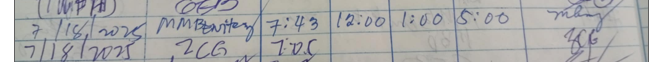 7/18/2025 MMBentley 7:43 12:00 1:00 5:00
7/18/2025 ZCG 7:05 ZCG